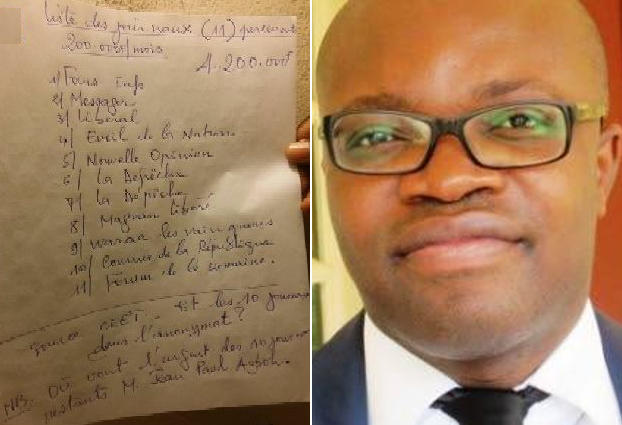 Liste des journaux (11) percevant
200 000f/mois
4.200.000f
1/ Focus Info
2/ Messager
3/ Libéral
4/ Eveil de la Nation
5/ Nouvelle Opinion
6/ La Dépêche
7/ La Dépêche
8/ Magnan Libéré
9/ Waraa les vainqueurs
10/ Courrier de la République
11/ Forum de la Semaine.
Source - Et les 10 journaux
dans l'anonymat ?
NB. Où vont l'argent des 10 journaux
restants M. Jean Paul Agboh.